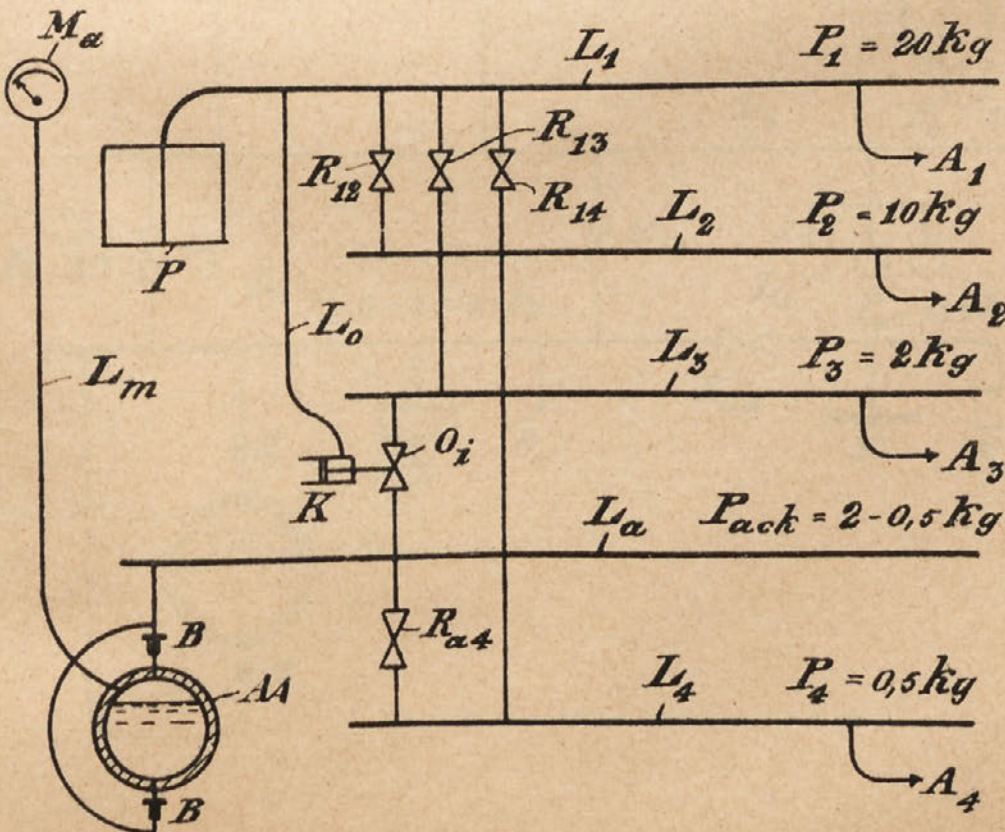 Ma
L1 P1 = 20 kg
R13
R12
A1
R14
L2 P2 = 10 kg
P
A2
Lo
Lm
L3 P3 = 2 kg
Oi
A3
K
La Pack = 2 - 0,5 kg
B
Ra4
AA
L4 P4 = 0,5 kg
B
A4